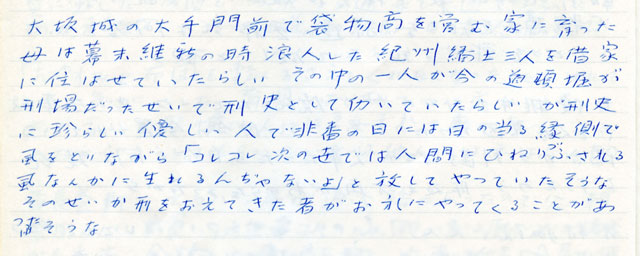 大坂城の大手門前で袋物商を営む家に育った
母は幕末維新の時浪人した紀州藩士三人を借家
に住はせていたらしい その中の一人が今の道頓堀が
刑場だったせいで刑吏として仂いていたらしいが刑吏
に珍らしい優しい人で非番の日には日の当る縁側で
虱をとりながら「コレコレ次の世では人間にひねりつぶされる
虱なんかに生れるんぢゃないよ」と放してやっていたそうな
そのせいか刑をおえてきた者がお礼にやってくることがあ
つたそうな